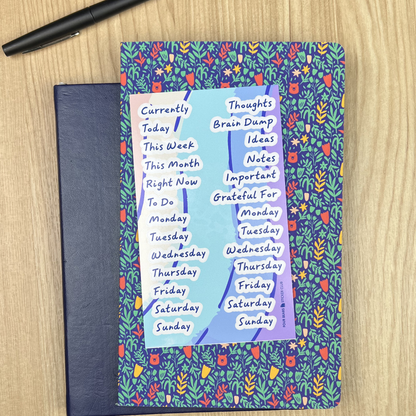 Currently
Today
This Week
This Month
Right Now
To Do
Monday
Tuesday
Wednesday
Thursday
Friday
Saturday
Sunday
Thoughts
Brain Dump
Ideas
Notes
Important
Grateful For
Monday
Tuesday
Wednesday
Thursday
Friday
Saturday
Sunday